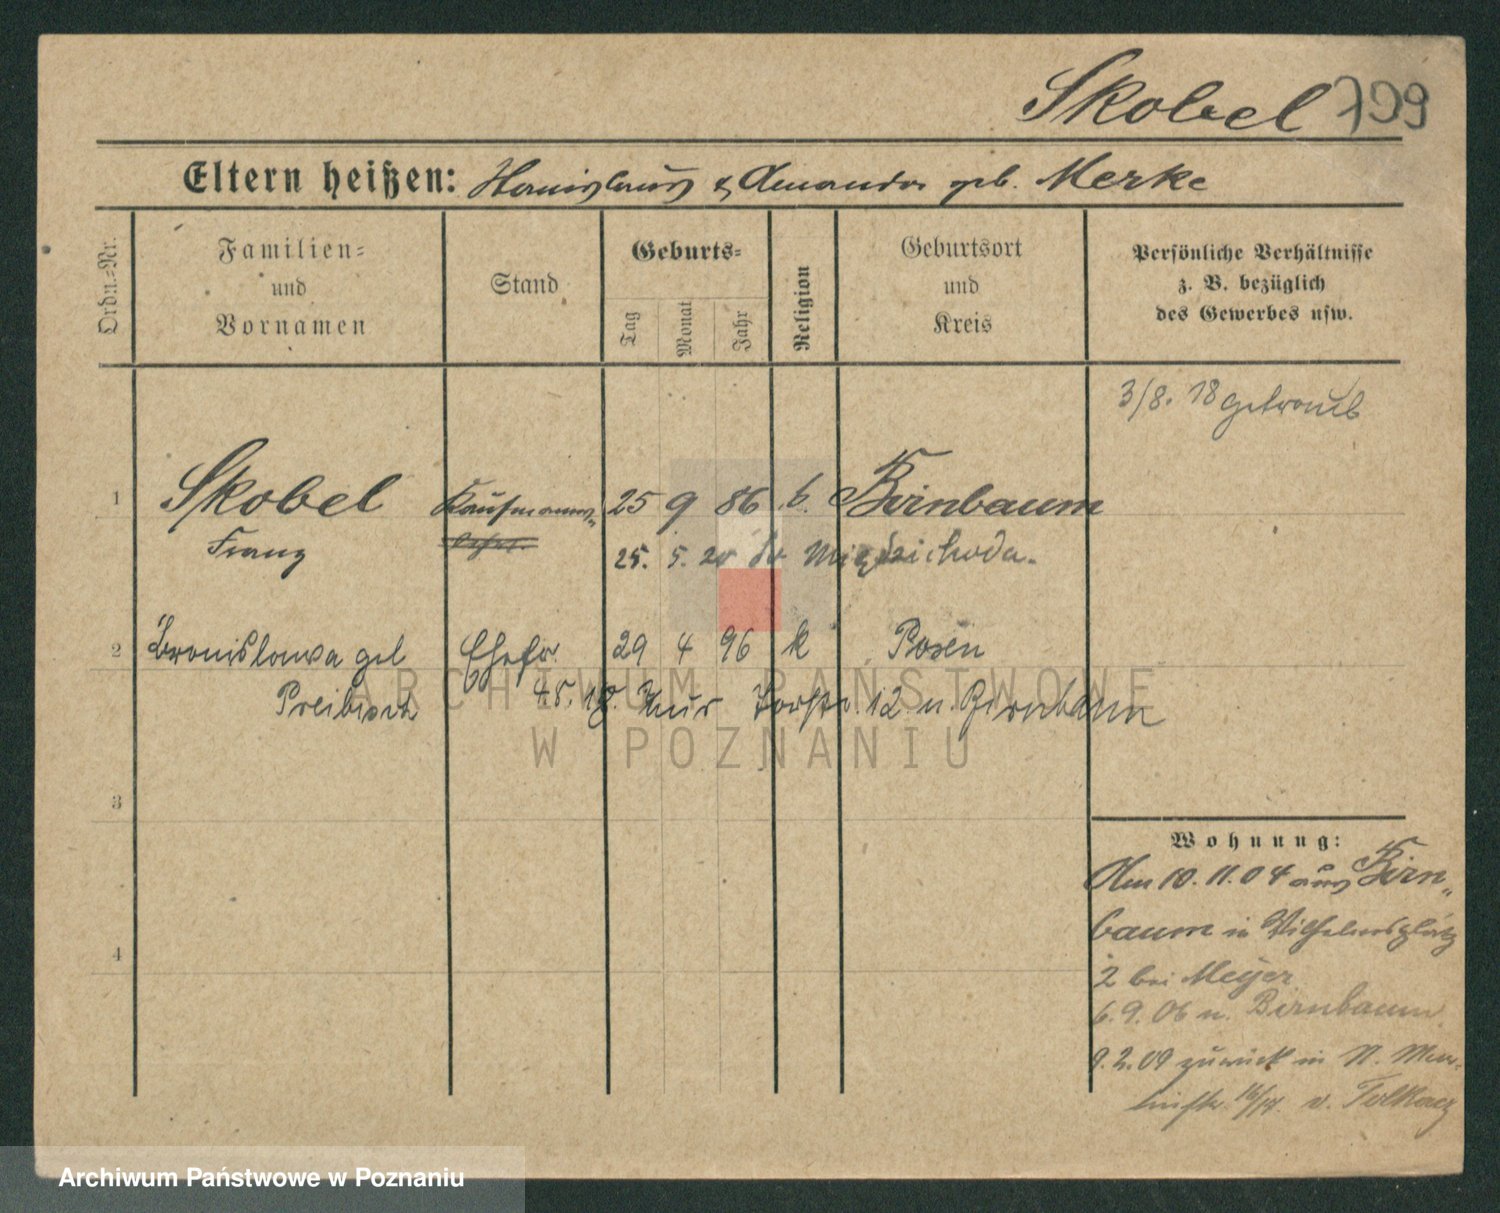 Skobel 799
Eltern heißen: Stanislaus & Amanda geb. Merke
Ordn.-Nr.
Familien- und Vornamen
Stand
Geburts-
Tag
Monat
Jahr
Religion
Geburtsort und Kreis
Persönliche Verhältnisse z. B. bezüglich des Gewerbes usw.
3/8. 18 getraut
1 Skobel Kaufmanns- 25 9 86 k. Birnbaum
Franz
25. 5. 20 Międzichoda.
2 Bronislawa geb Ehefr. 29 4 96 k Posen
Preibisch
4.5.18. 12 n. Birnbaum
3
4
Wohnung:
Am 10.11.04 aus Birn-
baum in Wilhelmsplatz
2 bei Meyer
6.9.06 n. Birnbaum
9.2.09 zurück in
16/17 v.
ARCHIWUM PAŃSTWOWE
W POZNANIU
Archiwum Państwowe w Poznaniu